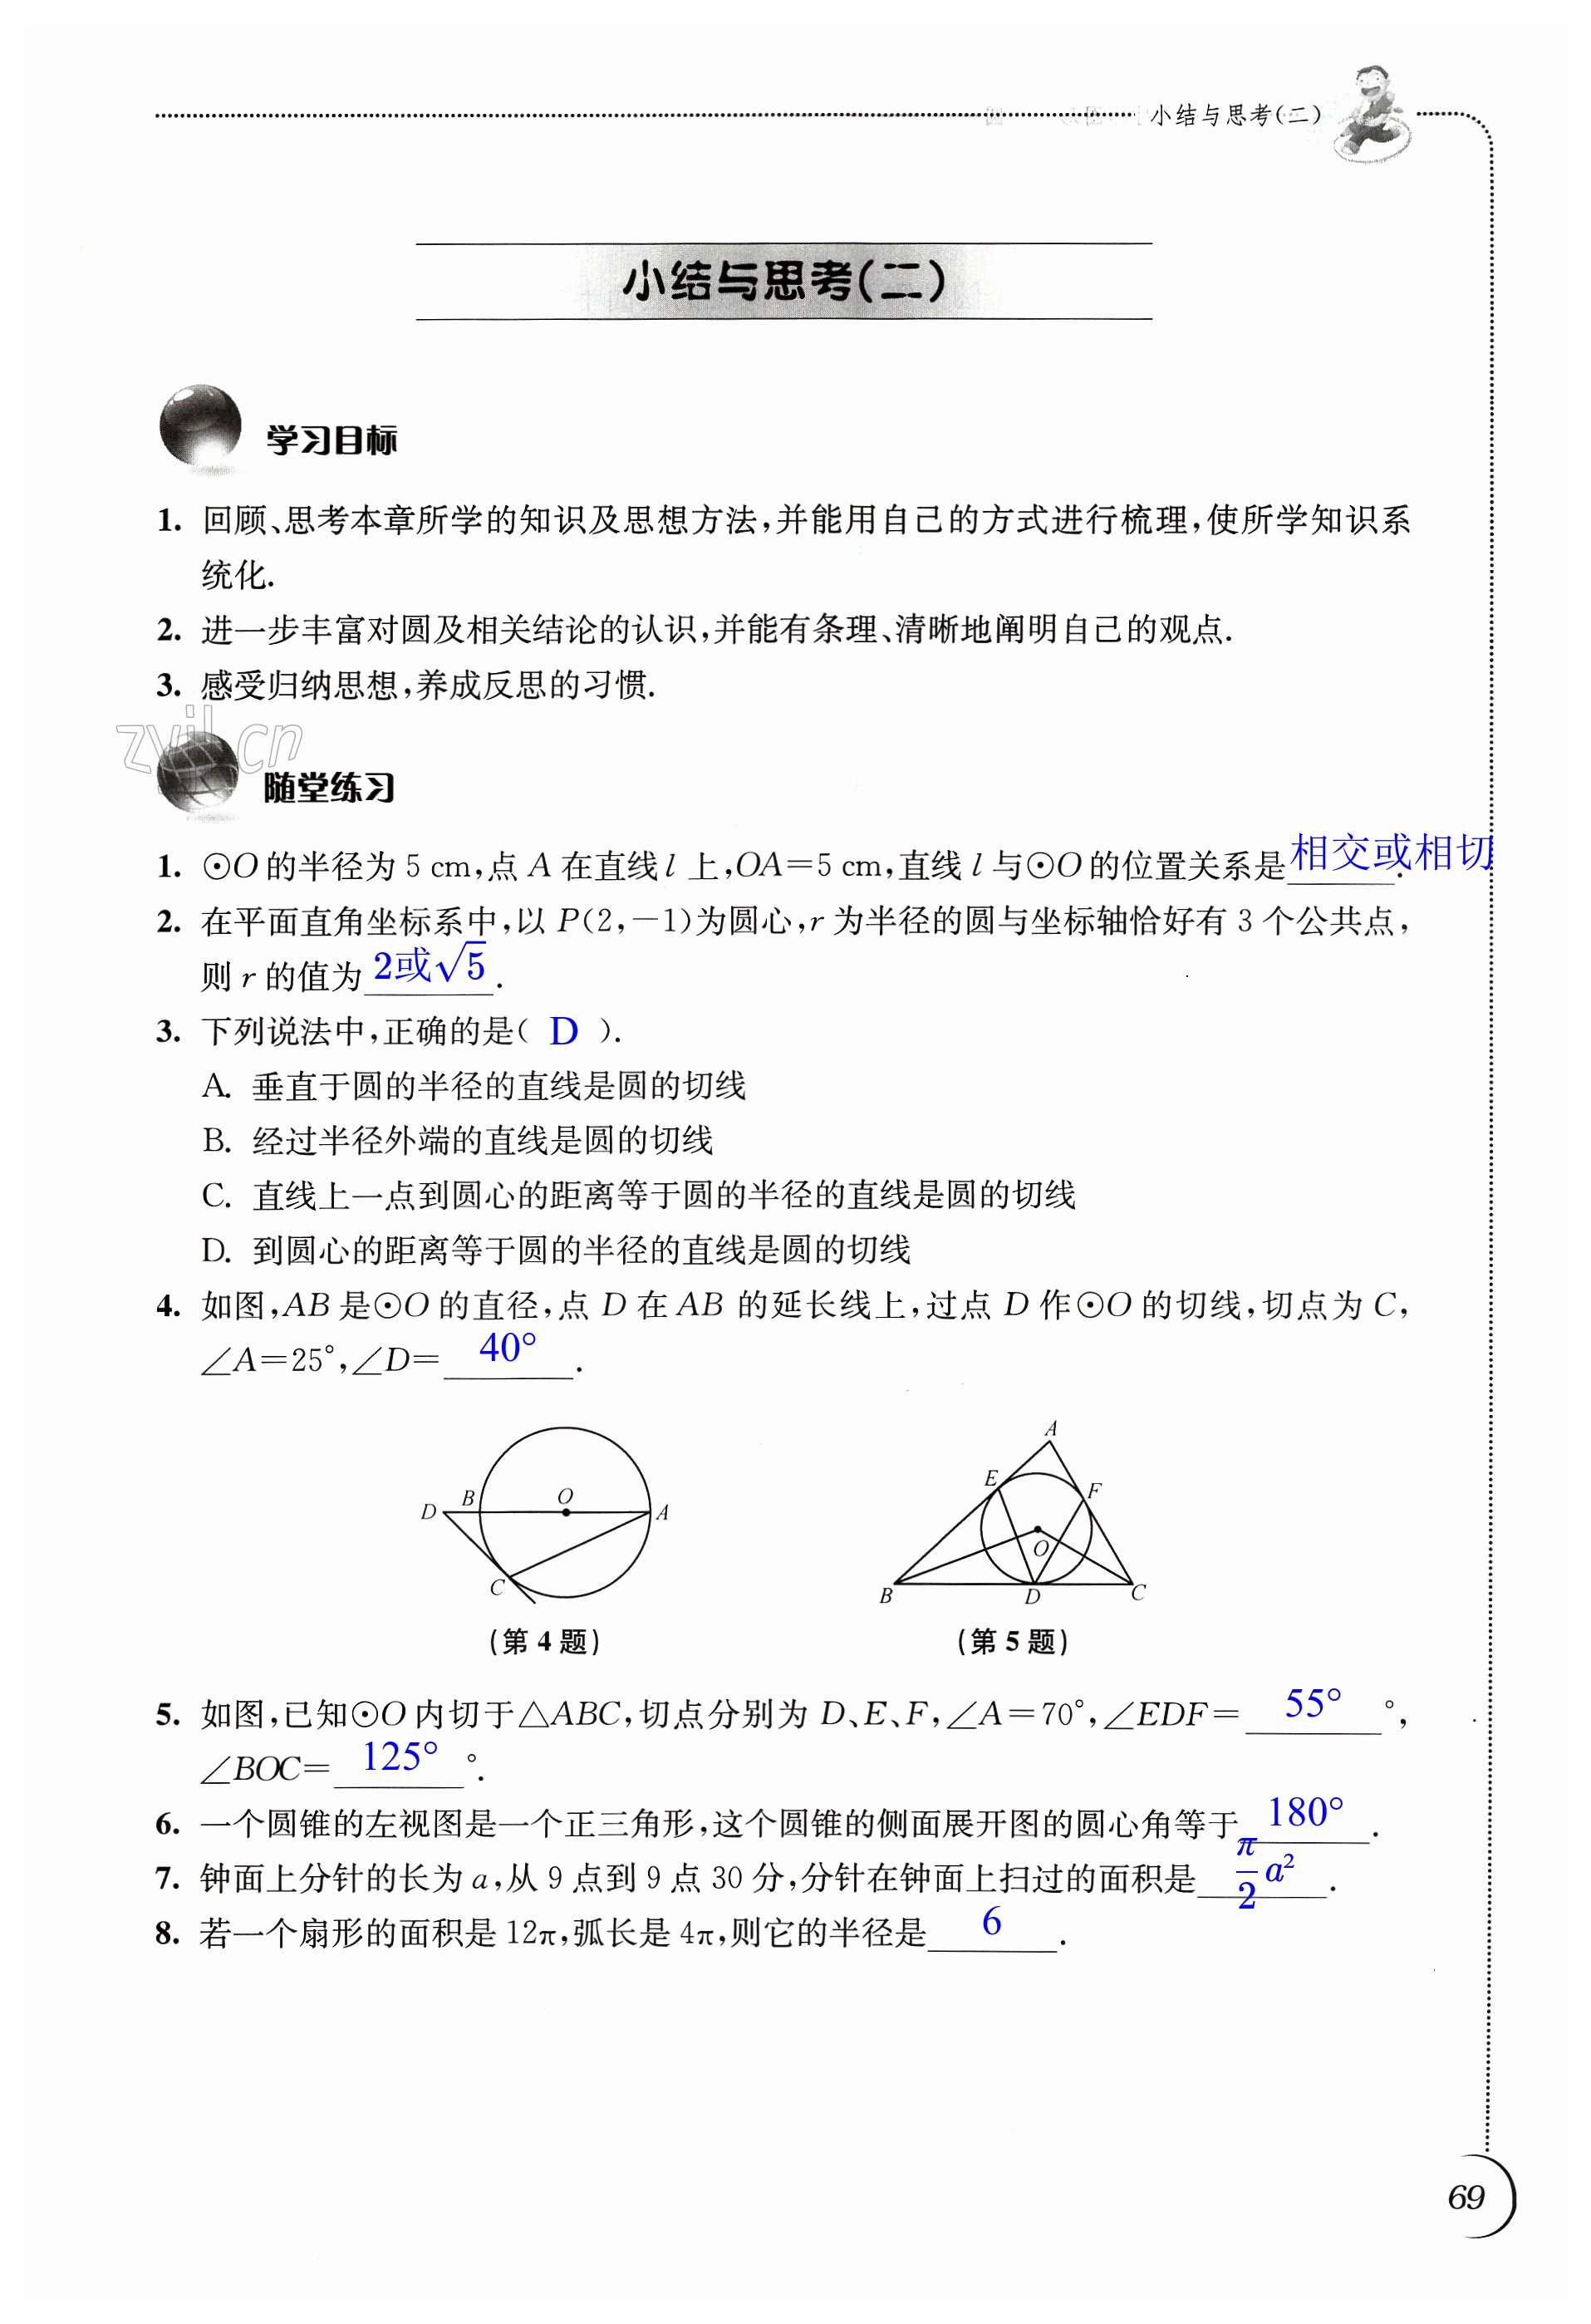 小结与思考(二)
小结与思考(二)
学习目标
1. 回顾、思考本章所学的知识及思想方法,并能用自己的方式进行梳理,使所学知识系
统化.
2. 进一步丰富对圆及相关结论的认识,并能有条理、清晰地阐明自己的观点.
3. 感受归纳思想,养成反思的习惯.
zyjl.cn
随堂练习
1. ⊙O的半径为5 cm,点A在直线l上,OA=5 cm,直线l与⊙O的位置关系是相交或相切.
2. 在平面直角坐标系中,以P(2,-1)为圆心,r为半径的圆与坐标轴恰好有3个公共点,
则r的值为2或√5.
3. 下列说法中,正确的是( D ).
A. 垂直于圆的半径的直线是圆的切线
B. 经过半径外端的直线是圆的切线
C. 直线上一点到圆心的距离等于圆的半径的直线是圆的切线
D. 到圆心的距离等于圆的半径的直线是圆的切线
4. 如图,AB是⊙O的直径,点D在AB的延长线上,过点D作⊙O的切线,切点为C,
∠A=25°,∠D= 40° .
D B O A C
A E F O B D C
(第4题) (第5题)
5. 如图,已知⊙O内切于△ABC,切点分别为D、E、F,∠A=70°,∠EDF= 55° °,
∠BOC= 125° °.
6. 一个圆锥的左视图是一个正三角形,这个圆锥的侧面展开图的圆心角等于 180° .
7. 钟面上分针的长为a,从9点到9点30分,分针在钟面上扫过的面积是 π/2 a² .
8. 若一个扇形的面积是12π,弧长是4π,则它的半径是 6 .
69